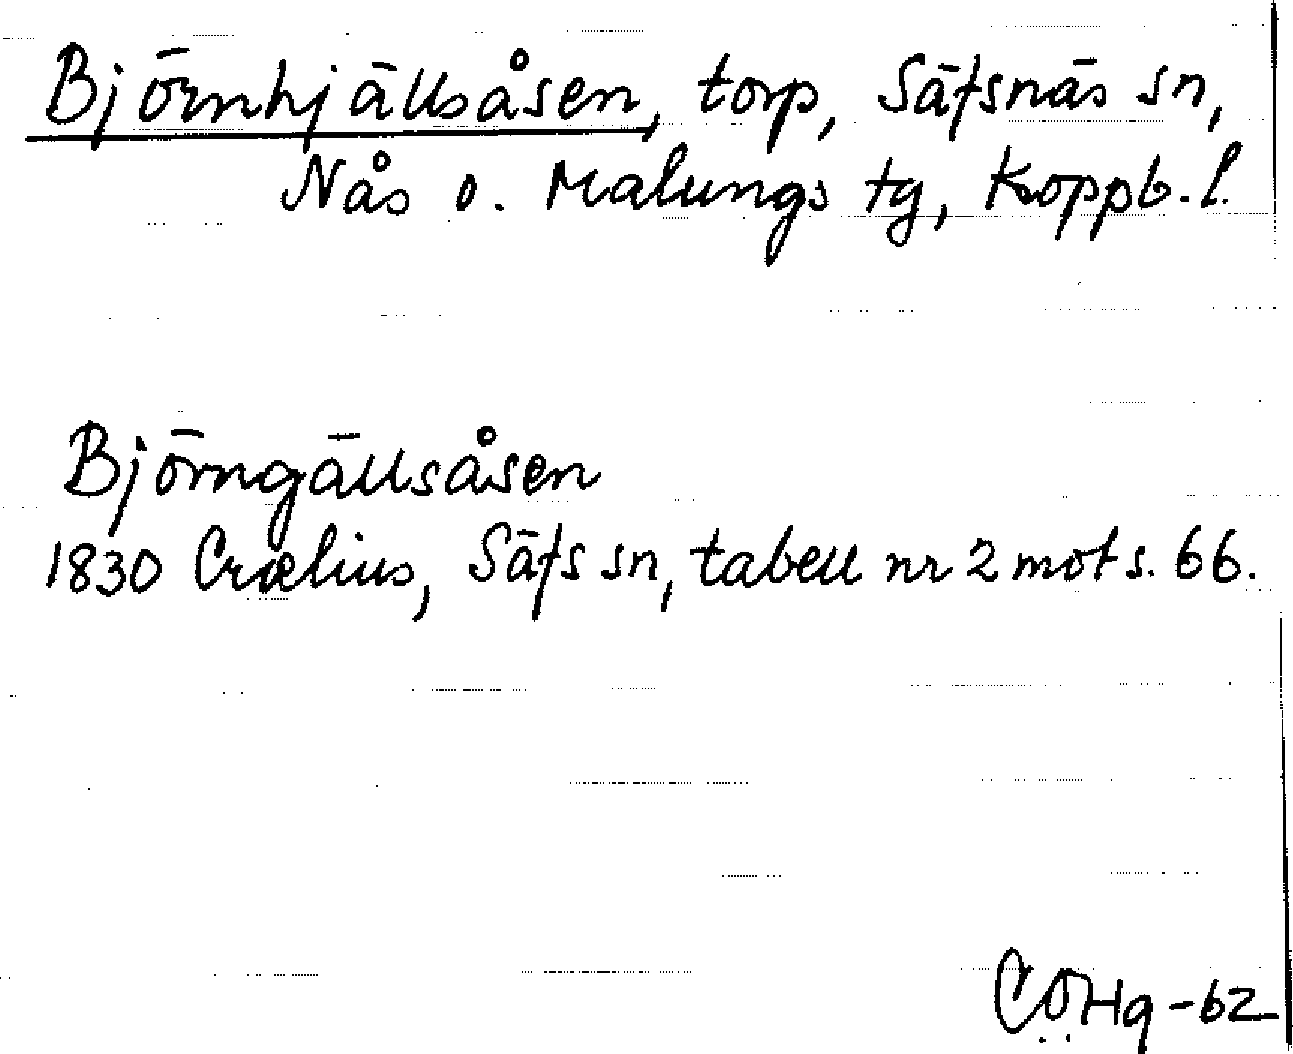 Björnhjällsåsen, torp, Säfsnäs sn,
Nås o. Malungs tg, Koppb. l.
Björngällsåsen
1830 Crælius, Säfs sn, tabell nr 2 mot s. 66.
CÖHg -62